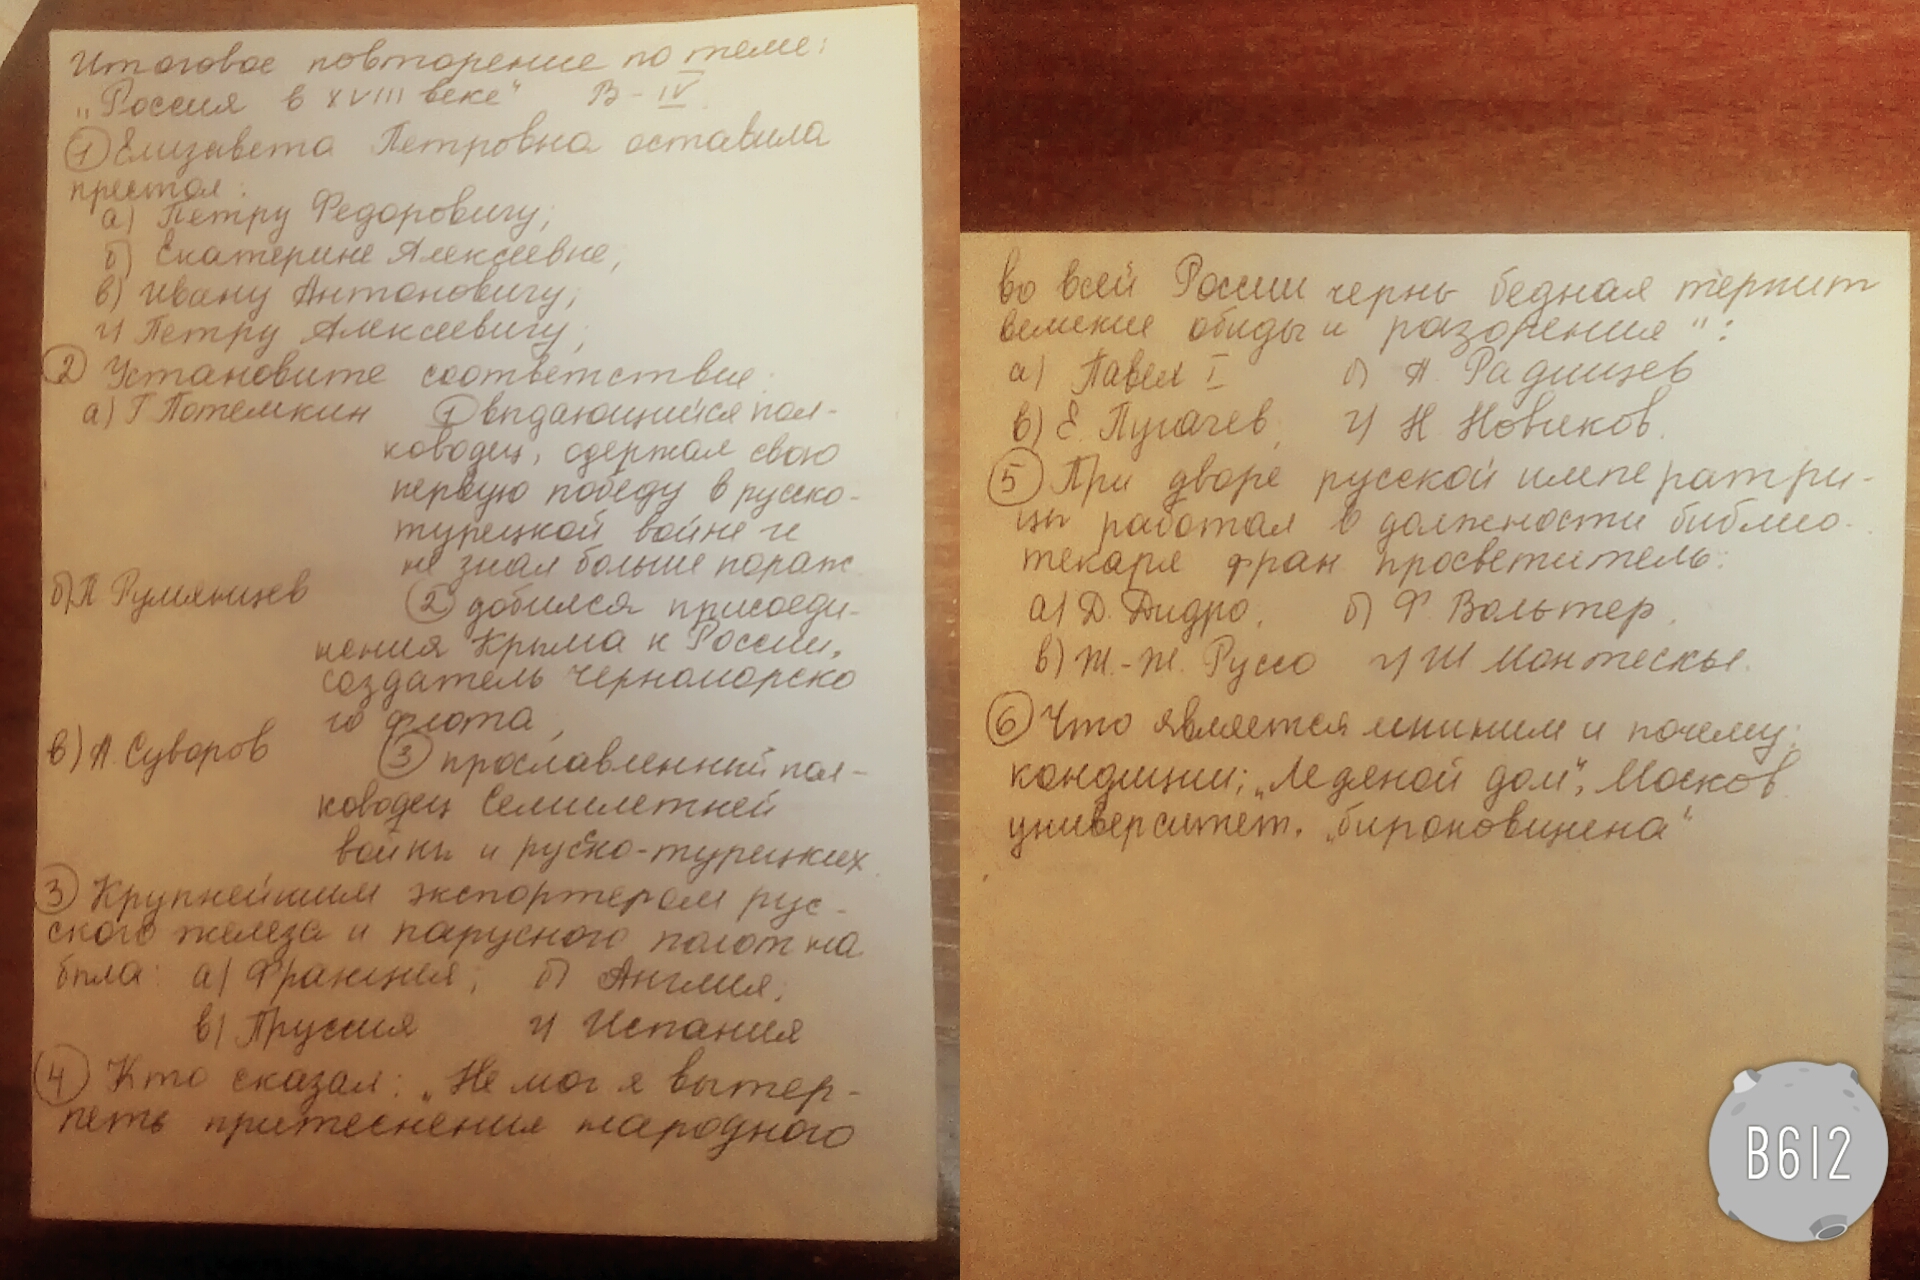 Итоговое повторение по теме:
„Россия в XVIII веке" В-IV.
① Елизавета Петровна оставила
престол:
а) Петру Федоровичу;
б) Екатерине Алексеевне;
в) Ивану Антоновичу;
г) Петру Алексеевичу;
② Установите соответствие:
а) Г Потемкин ① выдающийся пол-
ководец, одержал свою
первую победу в русско-
турецкой войне и
не знал больше пораж.
б) П Румянцев ② добился присоеди-
нения Крыма к России,
создатель Черноморско
го флота;
в) А. Суворов ③ прославленный пол-
ководец Семилетней
войны и руско-турецких.
③ Крупнейшим экспортером рус-
ского железа и парусного полотна
была: а) Франция; б) Англия;
в) Пруссия г) Испания
④ Кто сказал: „Не мог я вытер-
петь притеснения народного
во всей России чернь бедная терпит
великие обиды и разорения":
а) Павел I б) А. Радищев
в) Е. Пугачев; г) Н. Новиков.
⑤ При дворе русской императри-
цы работал в должности библио-
текаря фран просветитель:
а) Д. Дидро, б) Ф. Вольтер,
в) Ж.-Ж. Руссо г) Ш Монтескье.
⑥ Что является лишним и почему:
кондиции; „Ледяной дом"; Москов
университет. „бироновщина"
B612